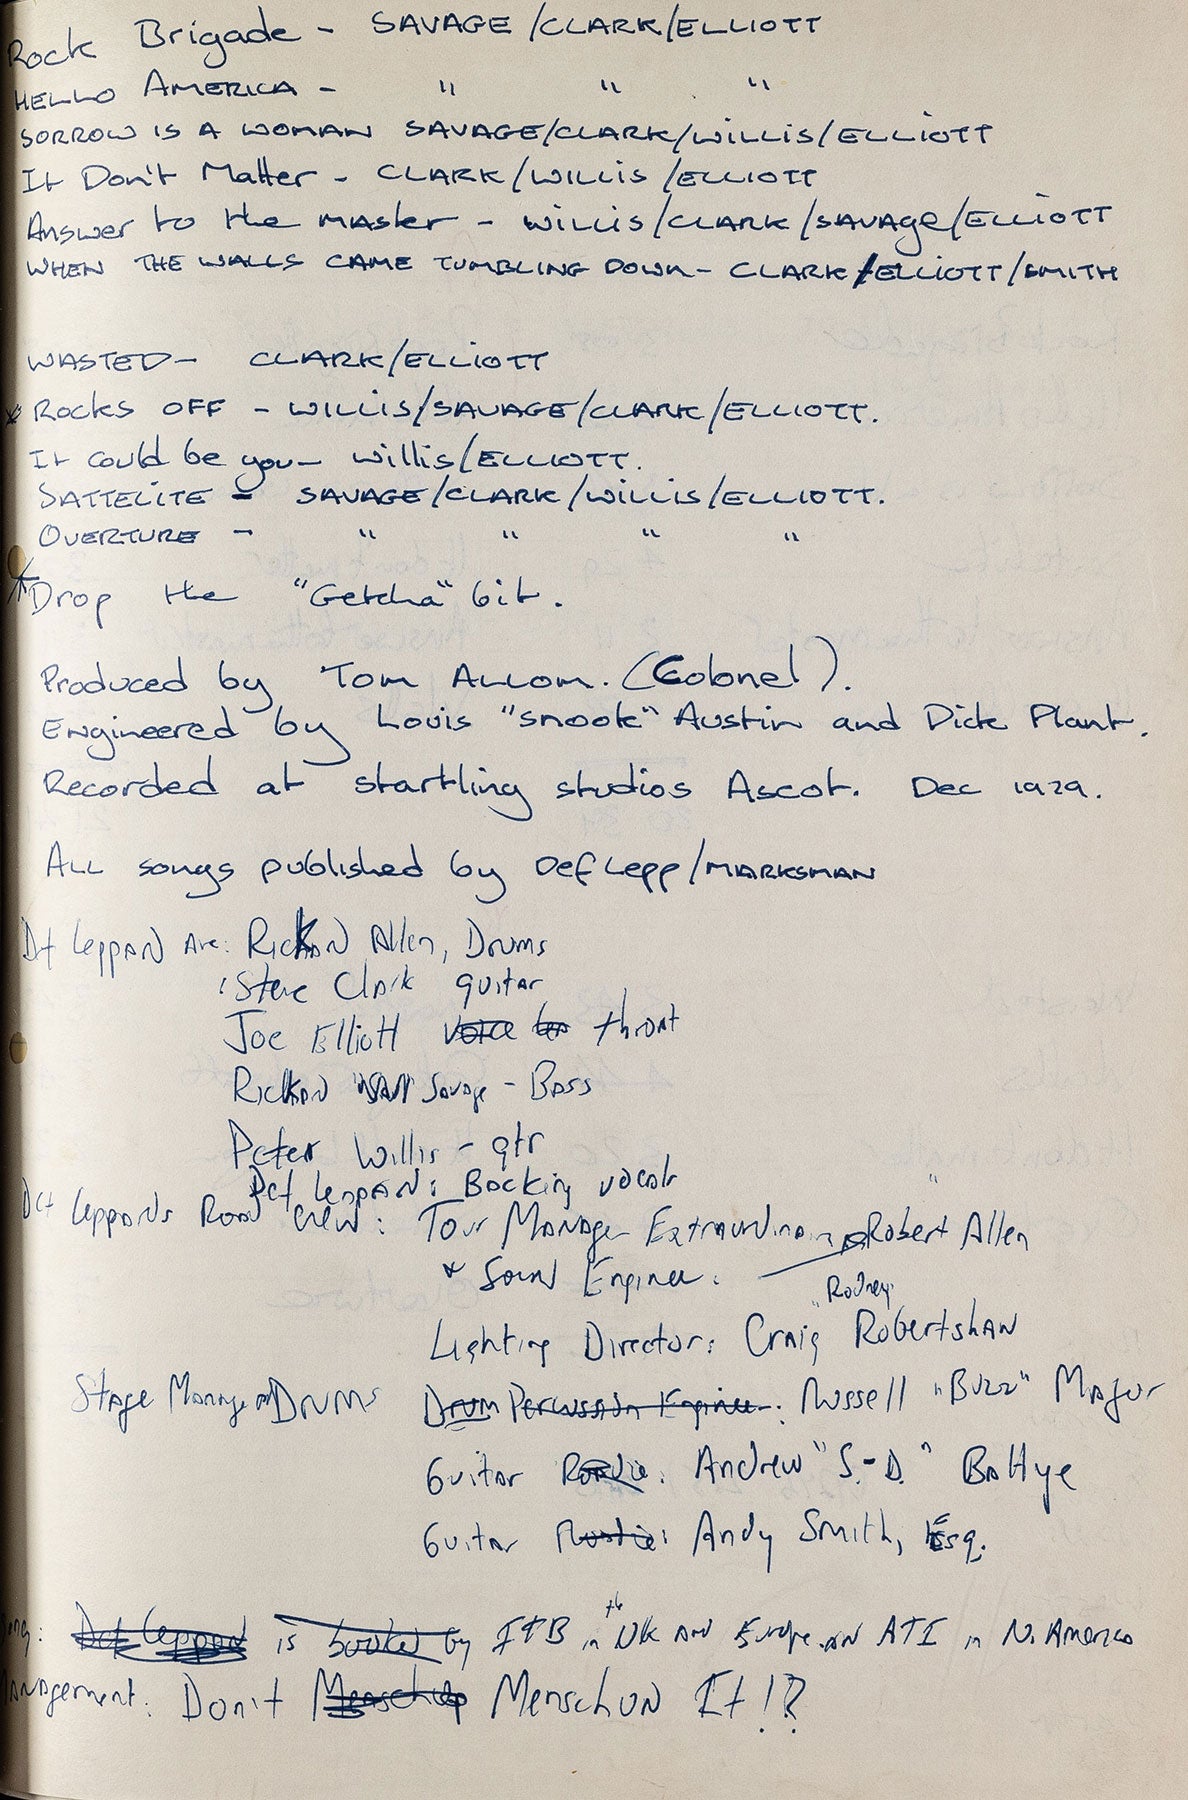 Rock Brigade - SAVAGE/CLARK/ELLIOTT
HELLO AMERICA - " " "
SORROW IS A WOMAN SAVAGE/CLARK/WILLIS/ELLIOTT
It Don't Matter - CLARK/WILLIS/ELLIOTT
Answer to the master - WILLIS/CLARK/SAVAGE/ELLIOTT
WHEN THE WALLS CAME TUMBLING DOWN - CLARK/ELLIOTT/SMITH
WASTED - CLARK/ELLIOTT
* ROCKS OFF - WILLIS/SAVAGE/CLARK/ELLIOTT.
It could be you - Willis/ELLIOTT.
SATTELITE - SAVAGE/CLARK/WILLIS/ELLIOTT.
OVERTURE - " " " "
* Drop the "Getcha" bit.
Produced by Tom ALLOM. (Colonel).
Engineered by Louis "snook" Austin and Dick Plant.
Recorded at startling studios Ascot. Dec 1979.
ALL songs published by Def Lepp/MARKSMAN
Def Leppard Are: Rick Allen, Drums
Steve Clark guitar
Joe Elliott Voice throat
Rick Savage - Bass
Peter Willis - gtr
Def Leppard: Backing vocals
Def Leppards Road Crew: Tour Manager Extraordinaire Robert Allen
& Sound Engineer:
Lighting Director: Craig "Rodney" Robertshaw
Stage Manager Drums Drum Percussion Engineer: Russell "Buzz" Major
Guitar Roadie: Andrew "S.-D." Battye
Guitar Roadie: Andy Smith, Esq.
Def Leppard is booked by ITB in the UK and Europe ATI in N. America
Management: Don't Menschup Mensch ON It!?